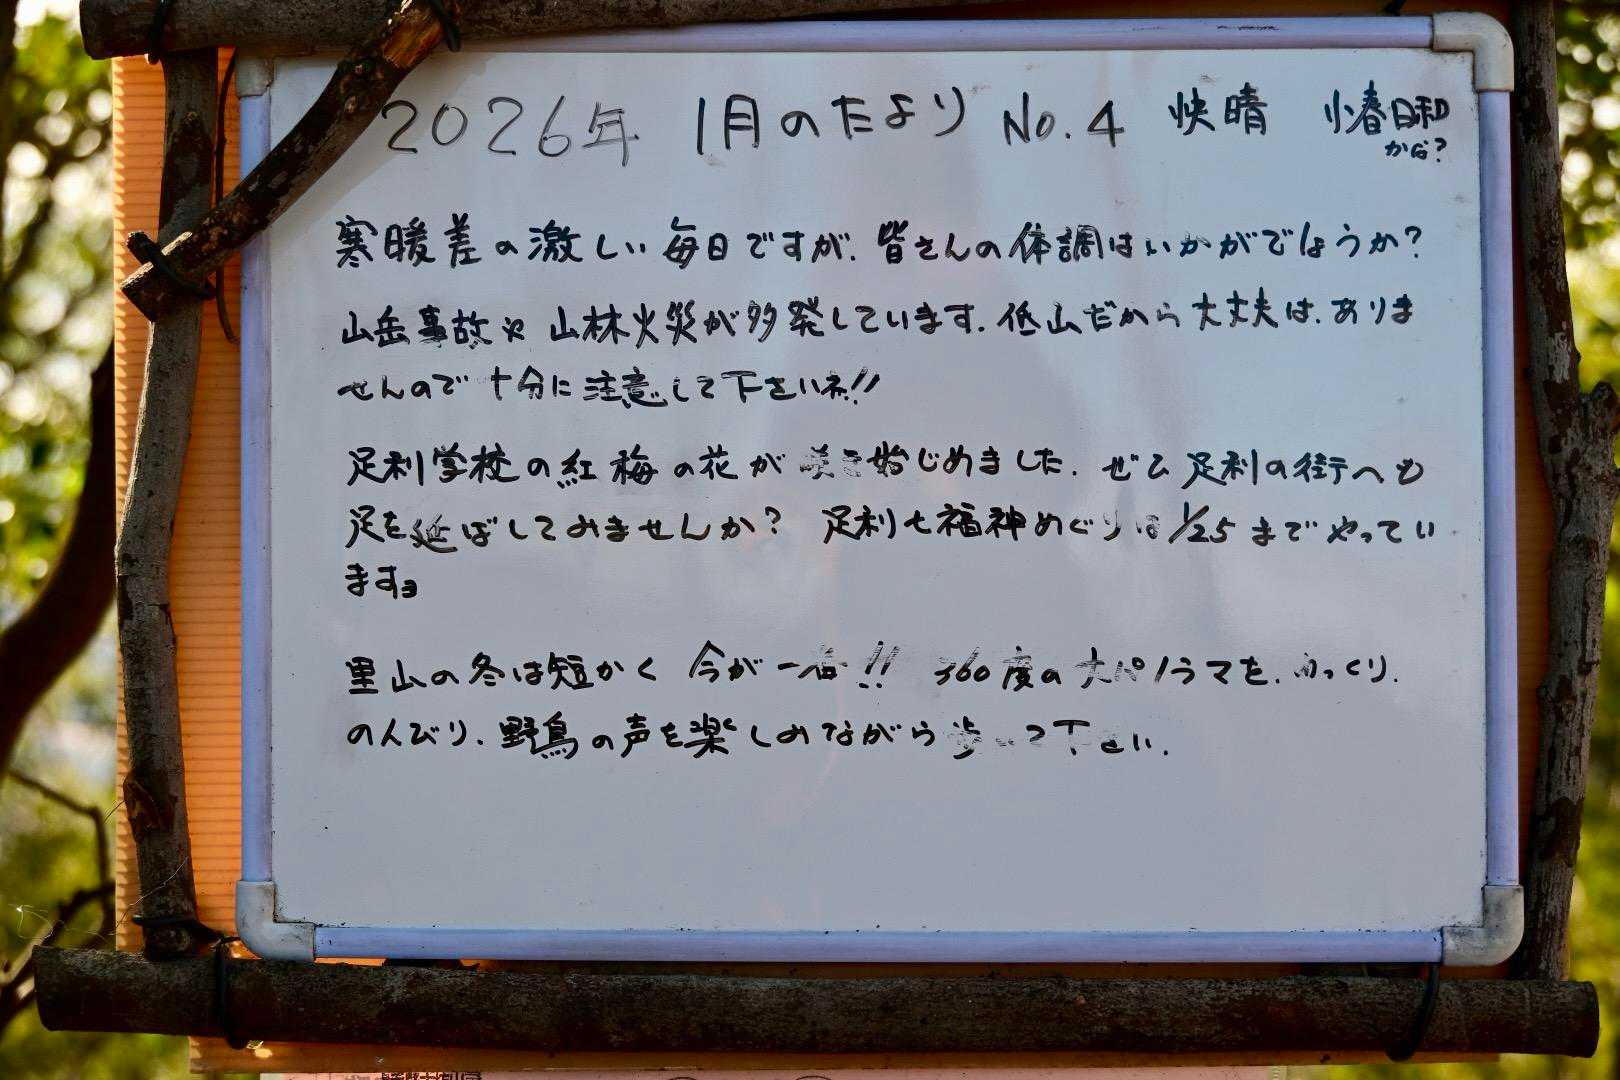 2026年 1月のたより No.4 快晴 小春日和
かな?
寒暖差の激しい毎日ですが、皆さんの体調はいかがでしょうか?
山岳事故や山林火災が多発しています。低山だから大丈夫は、ありま
せんので十分に注意して下さいネ!!
足利学校の紅梅の花が咲き始じめました。ぜひ足利の街へも
足を延ばしてみませんか? 足利七福神めぐりは1/25までやってい
ますョ
里山の冬は短かく 今が一番!! 360度の大パノラマを、ゆっくり、
のんびり、野鳥の声を楽しみながら歩いて下さい。